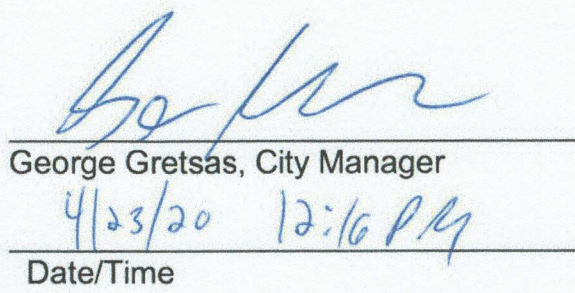 George Gretsas, City Manager
4/23/20 12:16 PM
Date/Time